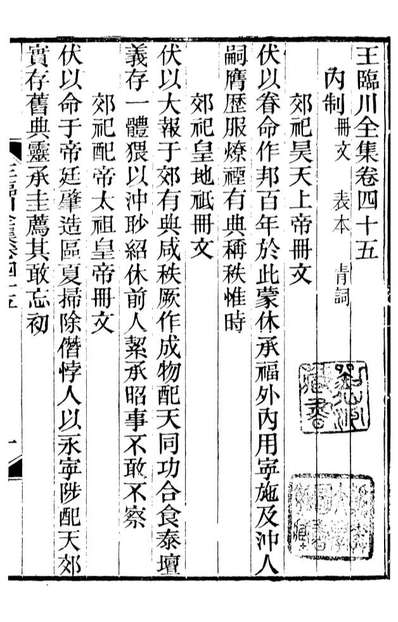 王臨川全集卷四十五
內制 冊文 表本 青詞
郊祀昊天上帝冊文
伏以眷命作邦百年於此蒙休承福外內用寧施及沖人
嗣膺歷服燎禋有典稱秩惟時
郊祀皇地祇冊文
伏以大報于郊有典咸秩厥作成物配天同功合食泰壇
義存一體猥以沖眇紹休前人絜承昭事不敢不察
郊祀配帝太祖皇帝冊文
伏以命于帝廷肇造區夏掃除僭悖人以永寧陟配天郊
實存舊典靈承主薦其敢忘初
一